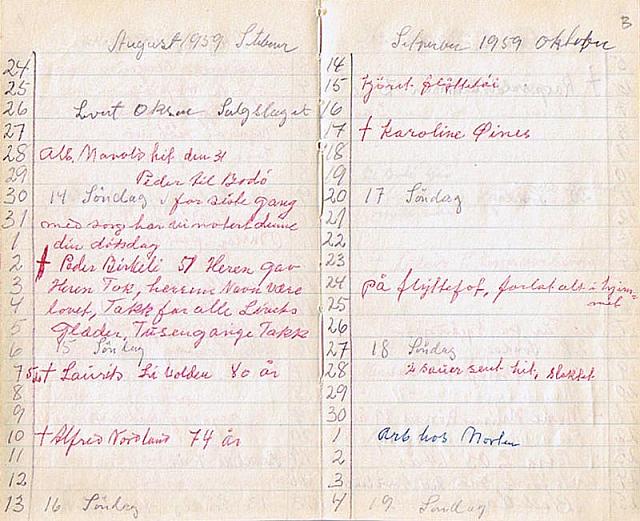 August 1959
24
25
26 Levert Oksne Salgslaget
27
28 Alb. hit den 31
29 Peder til Bodö
30 14 Söndag for siste gang
31 med sorg har vi notert denne
1 din dötsdag
2 † Peder Birkeli 57 Heren gav
3 Heren Tok, herrens Navn være
4 lovet, Takk for alle Livets
5 Gleder, Tusengange Takk
6 15 Söndag
7 † Laurits 80 år
8
9
10 † Alfred Nordland 74 år
11
12
13 16 Söndag
3
1959 Oktober
14
15 Kjört flöttetöi
16
17 † Karoline Øines
18
19
20 17 Söndag
21
22
23
24 På flyttefot, forlat alt i hjem-
25 met
26
27 18 Söndag
28 sauer sent hit, slaktet
29
30
1 Arb hos Morten
2
3
4 19 Söndag